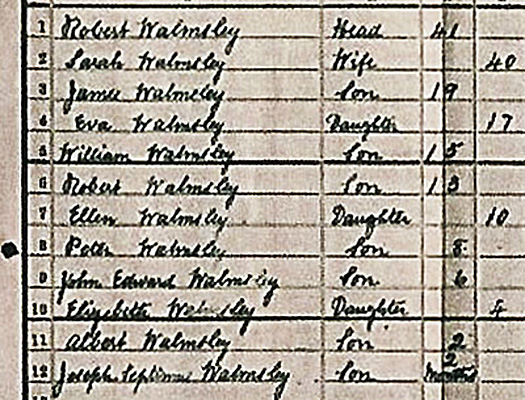 1 Robert Walmsley Head 41
2 Sarah Walmsley Wife 40
3 James Walmsley Son 19
4 Eva Walmsley Daughter 17
5 William Walmsley Son 15
6 Robert Walmsley Son 13
7 Ellen Walmsley Daughter 10
8 Peter Walmsley Son 8
9 John Edward Walmsley Son 6
10 Elizabeth Walmsley Daughter 4
11 Albert Walmsley Son 2
12 Joseph Septimus Walmsley Son 2 months